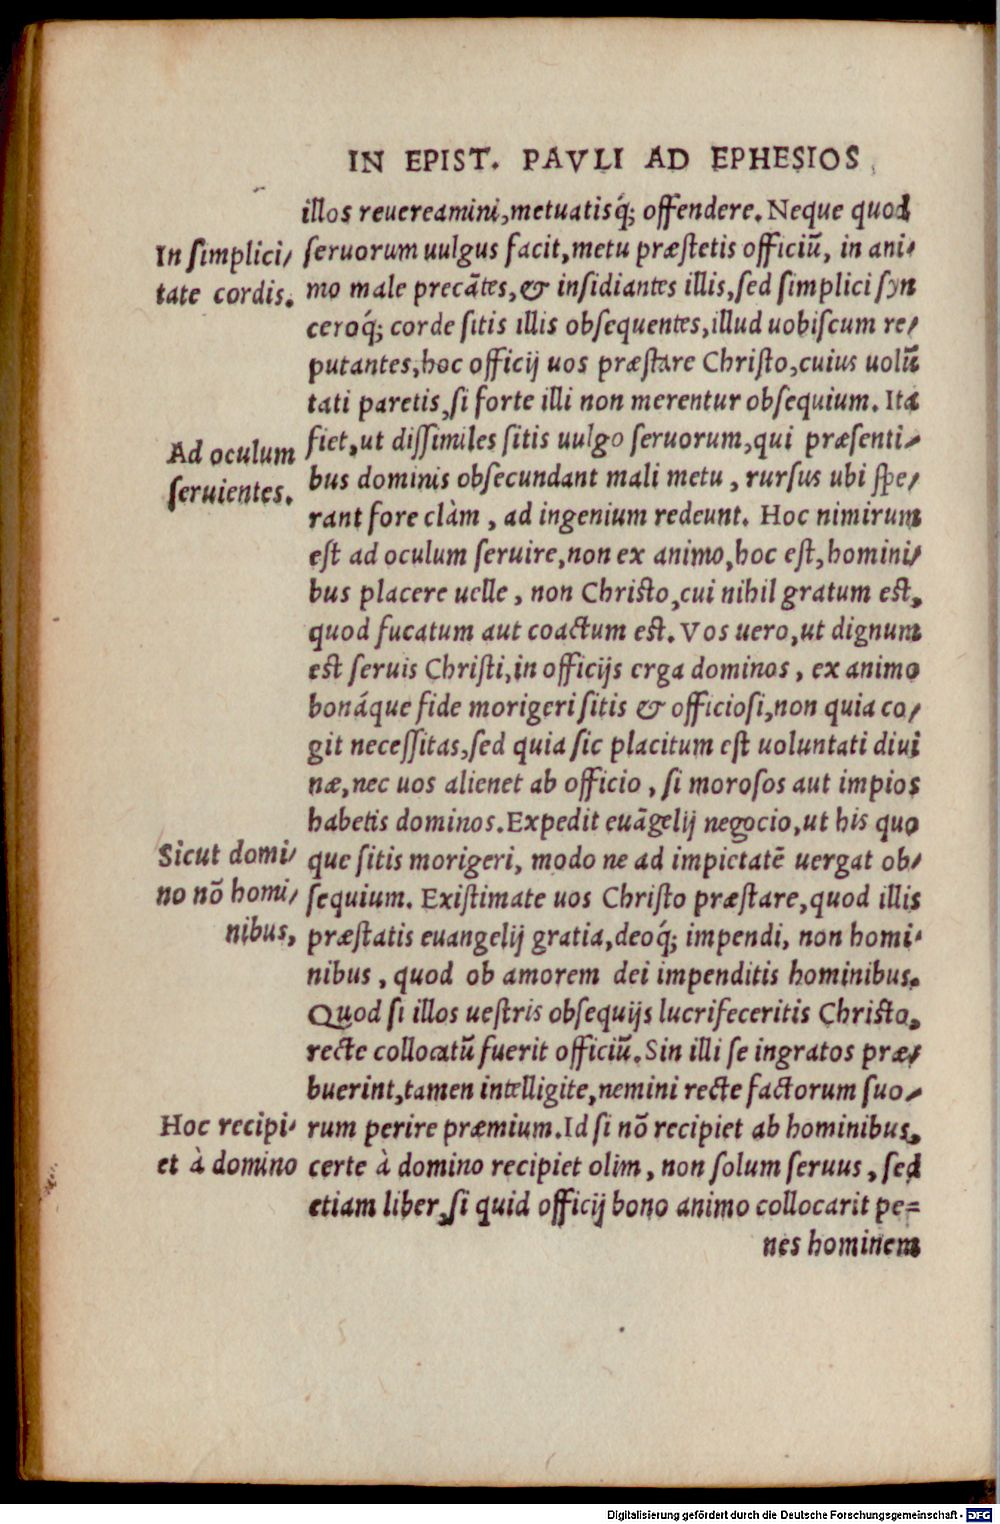 IN EPIST. PAVLI AD EPHESIOS
illos reuereamini, metuatisq́; offendere. Neque quod
In ſimplici/
tate cordis.
ſeruorum uulgus facit, metu præſtetis officiũ, in ani/
mo male precãtes, & inſidiantes illis, ſed ſimplici ſyn
ceroq́; corde ſitis illis obſequentes, illud uobiſcum re/
putantes, hoc officij uos præſtare Chriſto, cuius uolũ
tati paretis, ſi forte illi non merentur obſequium. Ita
Ad oculum
ſeruientes.
fiet, ut diſſimiles ſitis uulgo ſeruorum, qui præſenti/
bus dominis obſecundant mali metu, rurſus ubi ſpe/
rant fore clàm, ad ingenium redeunt. Hoc nimirum
eſt ad oculum ſeruire, non ex animo, hoc eſt, homini/
bus placere uelle, non Chriſto, cui nihil gratum eſt,
quod fucatum aut coactum eſt. Vos uero, ut dignum
eſt ſeruis Chriſti, in officijs erga dominos, ex animo
bonáque fide morigeri ſitis & officioſi, non quia co/
git neceſſitas, ſed quia ſic placitum eſt uoluntati diui
næ, nec uos alienet ab officio, ſi moroſos aut impios
habetis dominos. Expedit euãgelij negocio, ut his quo
Sicut domi/
no nõ homi/
nibus,
que ſitis morigeri, modo ne ad impietatẽ uergat ob/
ſequium. Exiſtimate uos Chriſto præſtare, quod illis
præſtatis euangelij gratia, deoq́; impendi, non homi/
nibus, quod ob amorem dei impenditis hominibus.
Quod ſi illos ueſtris obſequijs lucrifeceritis Chriſto,
recte collocatũ fuerit officiũ. Sin illi ſe ingratos præ/
buerint, tamen intelligite, nemini recte factorum ſuo/
Hoc recipi/
et à domino
rum perire præmium. Id ſi nõ recipiet ab hominibus,
certe à domino recipiet olim, non ſolum ſeruus, ſed
etiam liber, ſi quid officij bono animo collocarit pe=
nes hominem
Digitalisierung gefördert durch die Deutsche Forschungsgemeinschaft - DFG